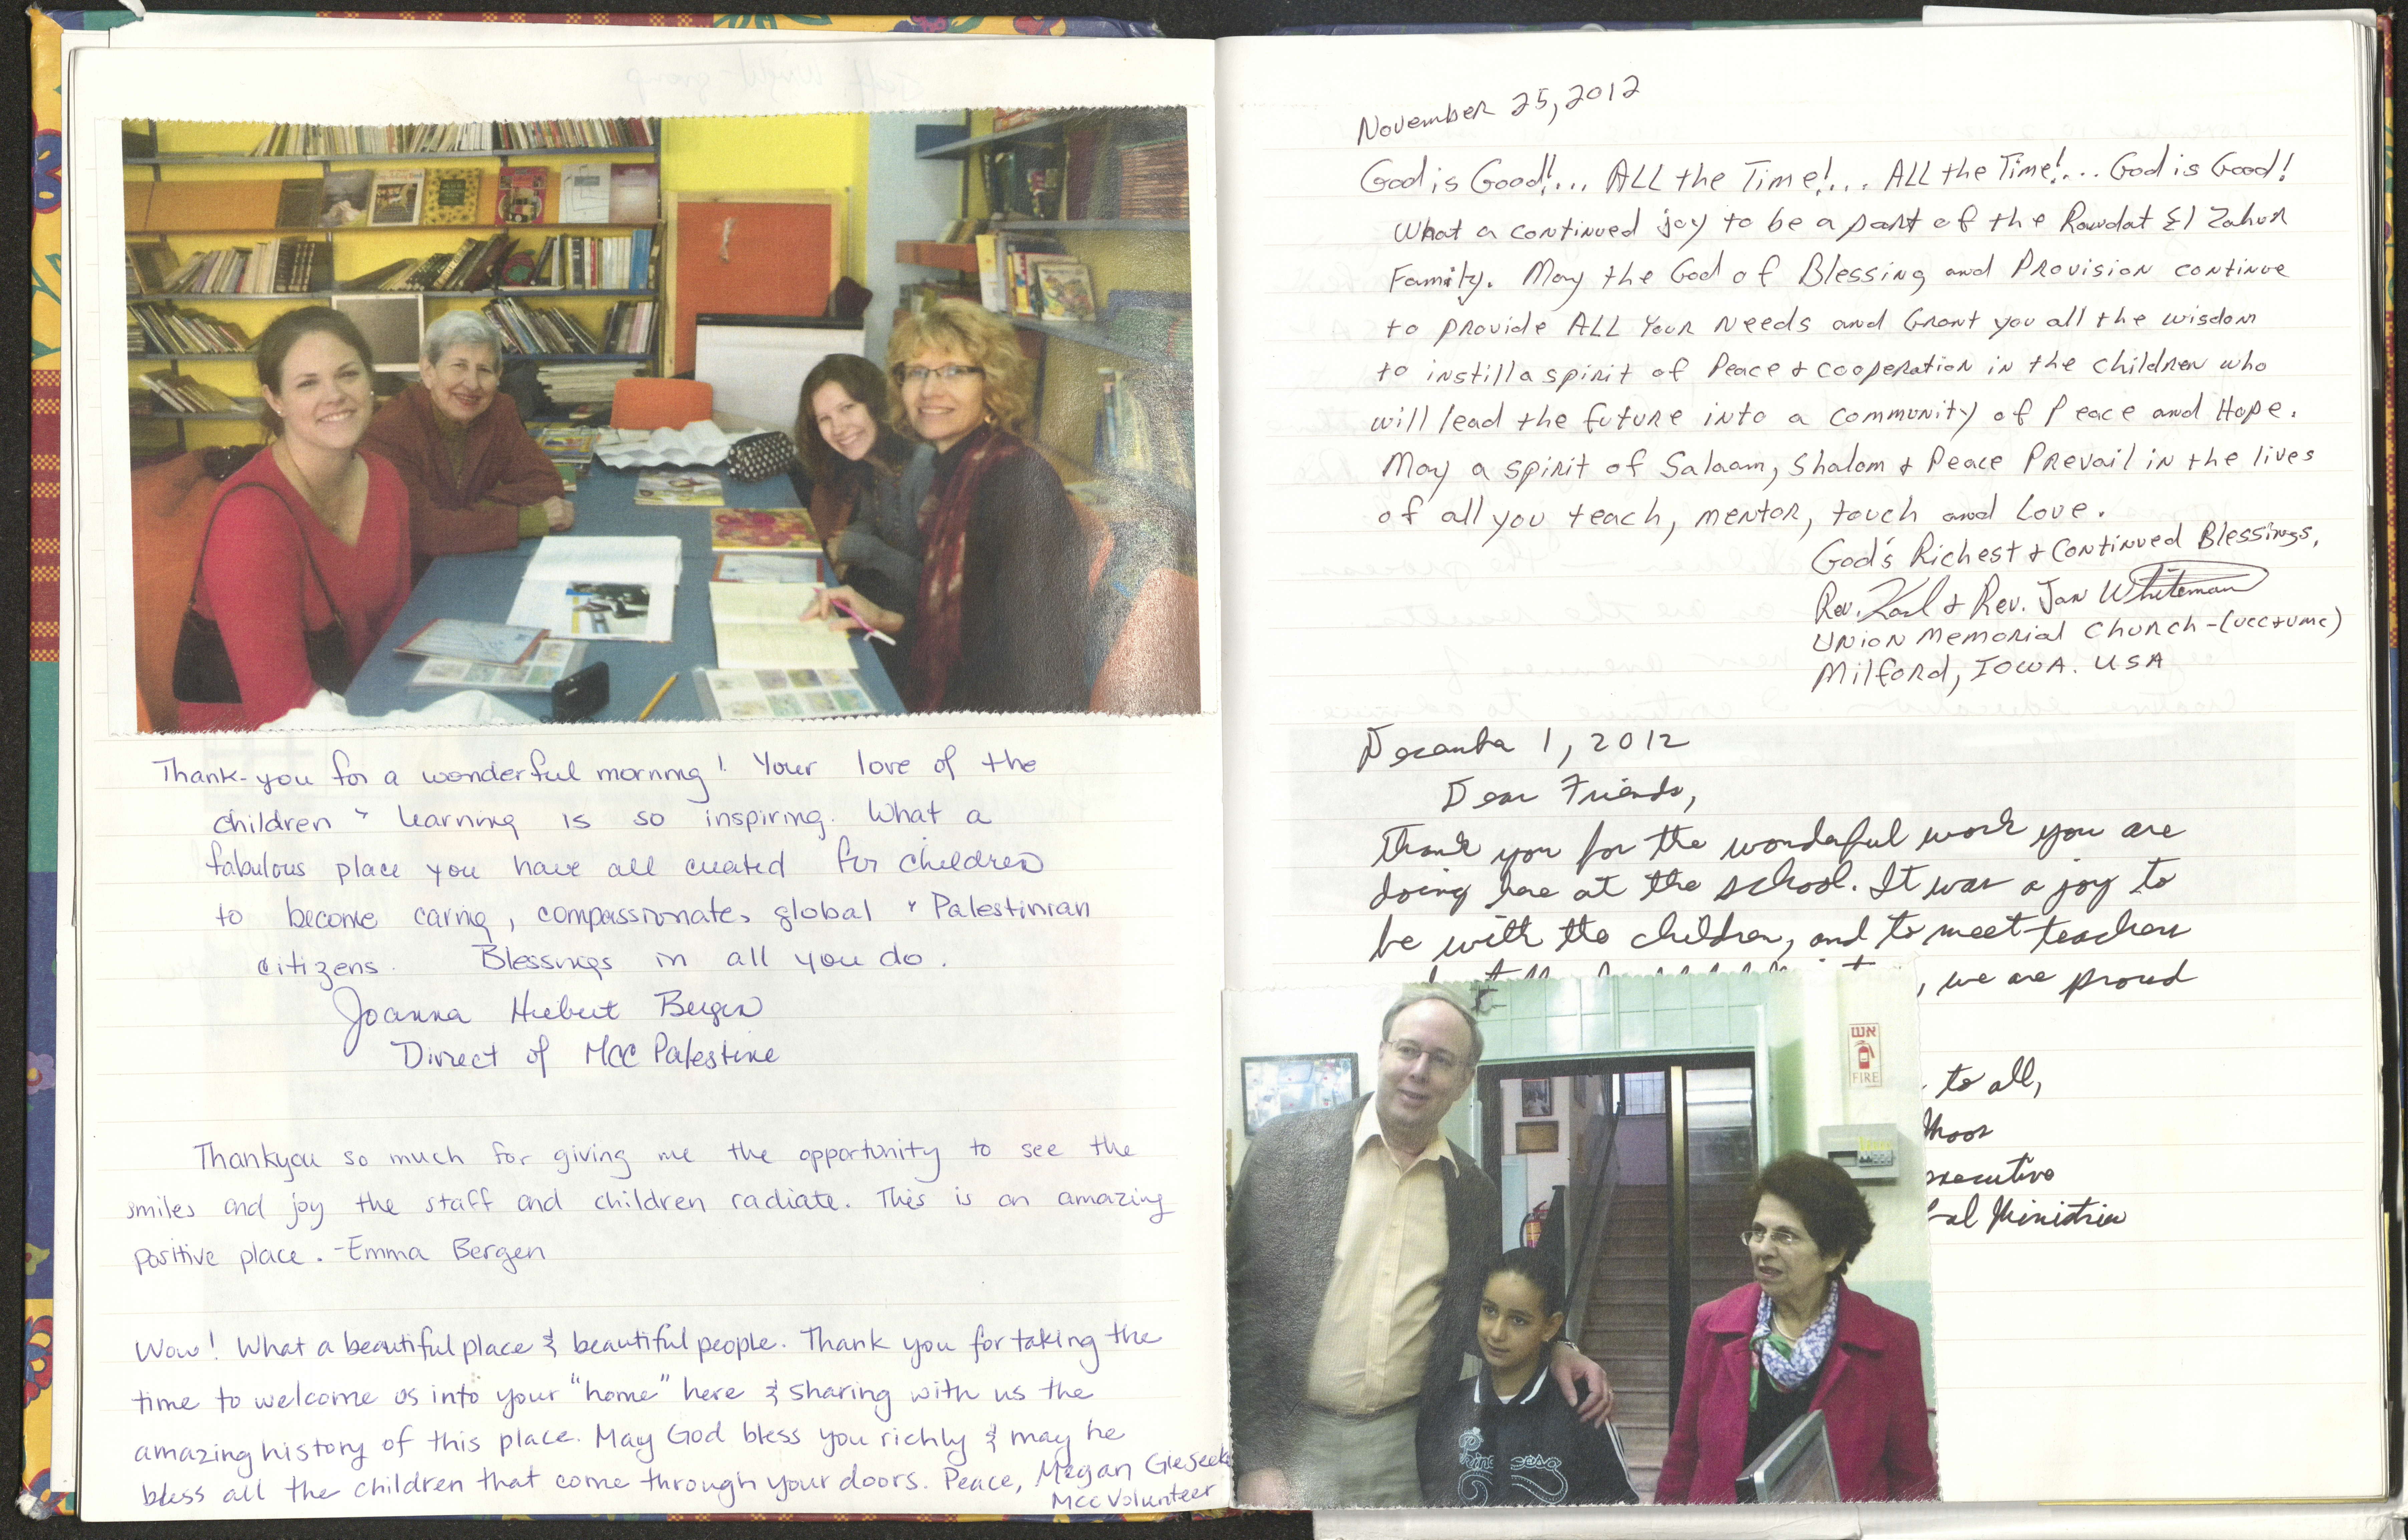 Thank-you for a wonderful morning! Your love of the
children & learning is so inspiring. What a
fabulous place you have all created for children
to become caring, compassionate, global & Palestinian
citizens. Blessings in all you do.
Joanna Hiebert Bergen
Direct of MCC Palestine
Thankyou so much for giving me the opportunity to see the
smiles and joy the staff and children radiate. This is an amazing
positive place. -Emma Bergen
Wow! What a beautiful place & beautiful people. Thank you for taking the
time to welcome us into your "home" here & sharing with us the
amazing history of this place. May God bless you richly & may he
bless all the children that come through your doors. Peace, Megan Giesecke
MCC Volunteer
November 25, 2012
God is Good!... ALL the Time!... ALL the Time!... God is Good!
What a continued joy to be a part of the Rawdat El Zahur
Family. May the God of Blessing and Provision continue
to provide ALL Your Needs and Grant you all the wisdom
to instill a spirit of Peace & cooperation in the children who
will lead the future into a community of Peace and Hope.
May a spirit of Salaam, Shalom & Peace Prevail in the lives
of all you teach, mentor, touch and Love.
God's Richest & Continued Blessings,
Rev. Karl & Rev. Jan Whiteman
Union Memorial Church-(UCC & UMC)
Milford, IOWA. USA
December 1, 2012
Dear Friends,
Thank you for the wonderful work you are
doing here at the school. It was a joy to
be with the children, and to meet teachers
, we are proud
to all,
Moos
executive
bal Ministries
אש
FIRE
Princesa